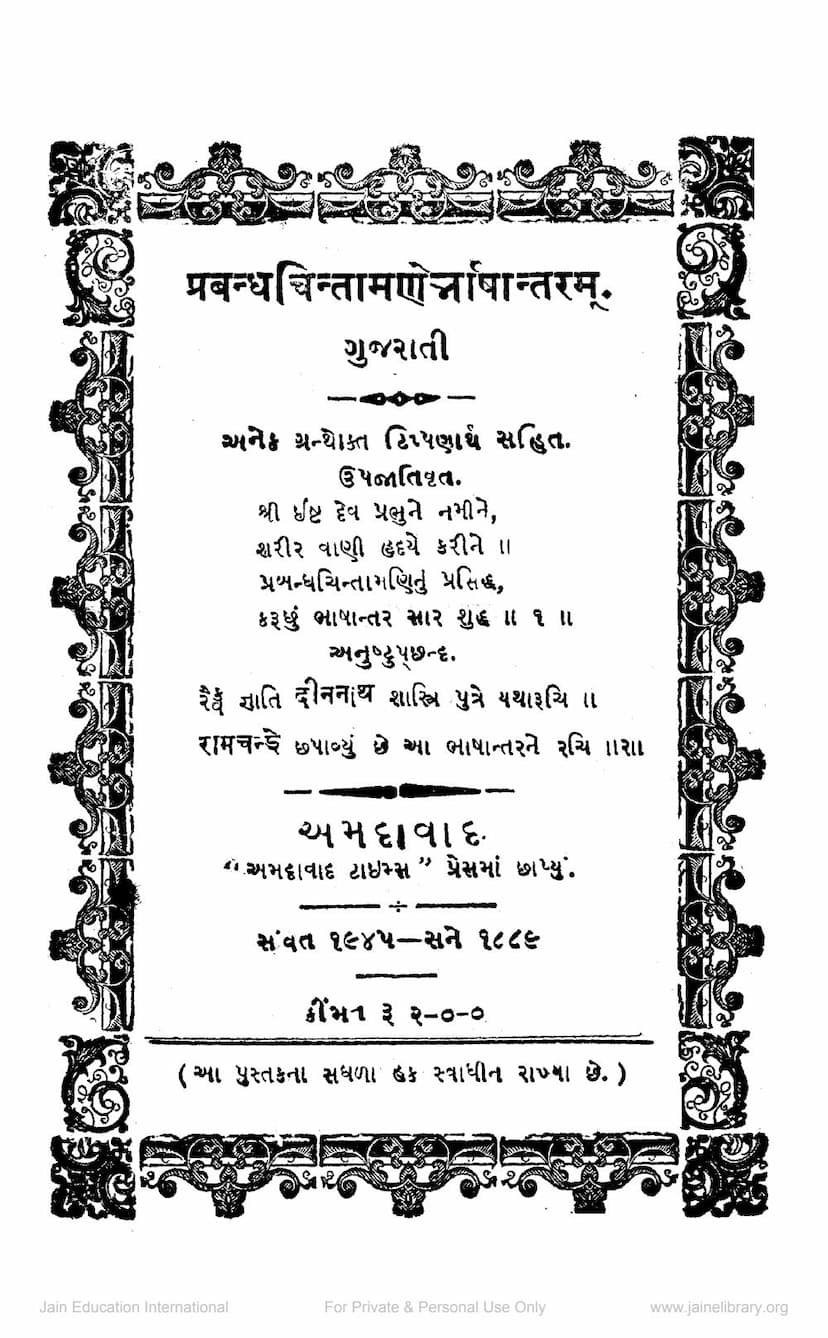 प्रबन्धचिन्तामणेर्भाषान्तरम्.
ગુજરાતી
અનેક ગ્રન્થોક્ત ટિપ્પણાર્થ સહિત.
ઉપજાતિવૃત.
શ્રી ઈષ્ટ દેવ પ્રભુને નમીને,
શરીર વાણી હૃદયે કરીને ॥
પ્રબન્ધચિન્તામણિનું પ્રસિદ્ધ,
કરૂછું ભાષાન્તર સાર શુદ્ધ ॥ ૧ ॥
અનુષ્ટુપ્છન્દ.
રૈક્વ જ્ઞાતિ दीननाथ શાસ્ત્રિ પુત્રે યથારૂચિ ॥
रामचन्द्रे છપાવ્યું છે આ ભાષાન્તરને રચિ ॥૨॥
અમદાવાદ.
“અમદાવાદ ટાઇમ્સ” પ્રેસમાં છાપ્યું.
સંવત ૧૯૪૫—સને ૧૮૮૯
કીંમત રૂ ૨-૦-૦
(આ પુસ્તકના સઘળા હક સ્વાધીન રાખ્યા છે.)
Jain Education International For Private & Personal Use Only www.jainelibrary.org